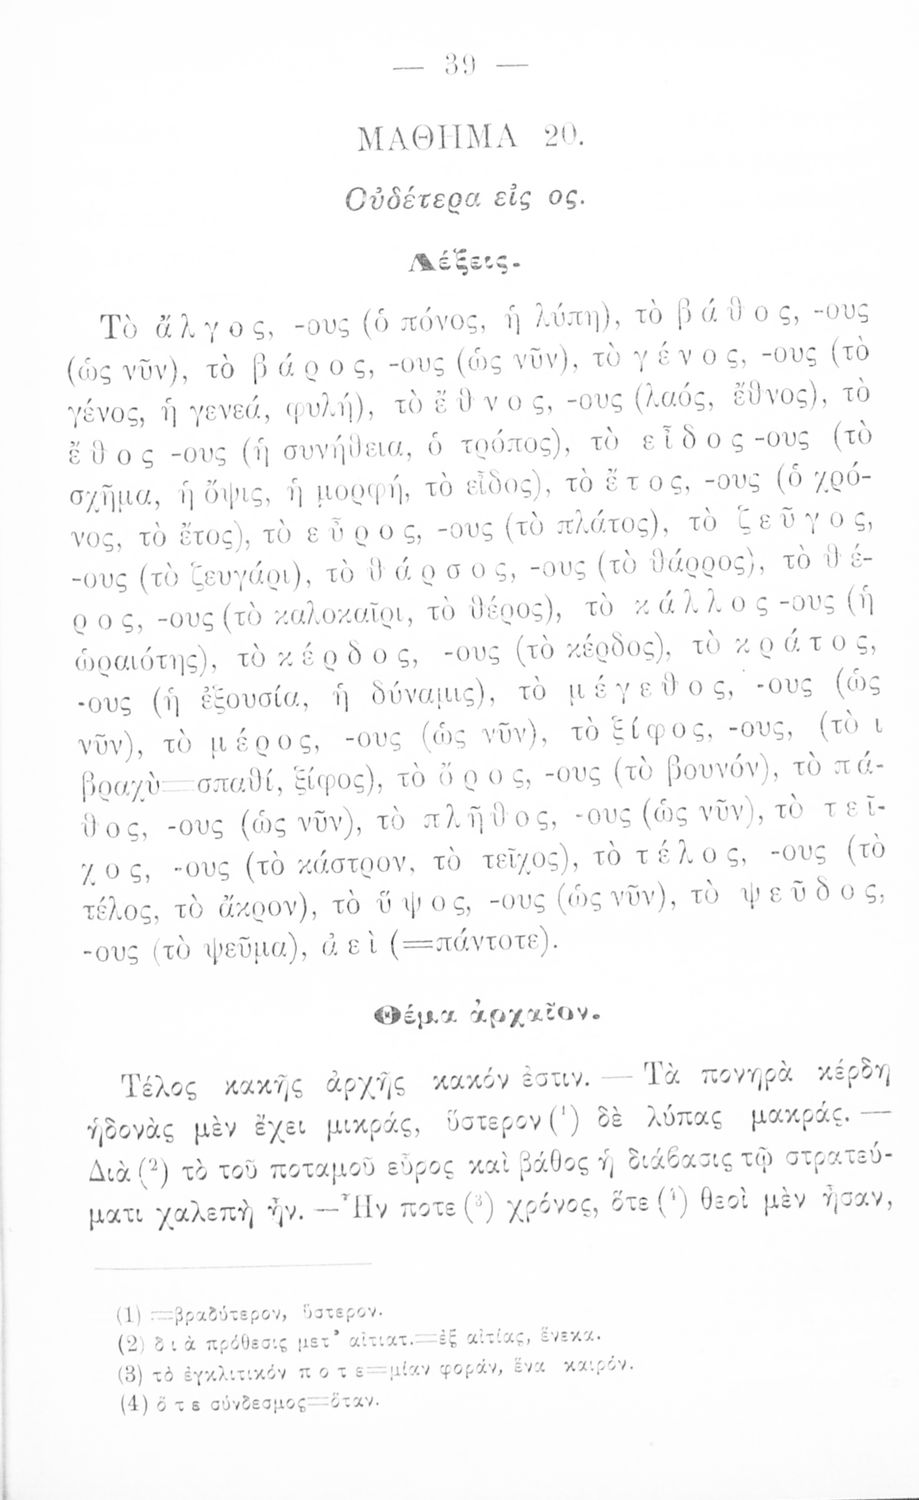 — 39 —
ΜΑΘΗΜΑ 20.
Οὐδέτερα εἰς ος.
Λέξεις.
Τὸ ἄλγος, -ους (ὁ πόνος, ἡ λύπη), τὸ βάθος, -ους
(ὡς νῦν), τὸ βάρος, -ους (ὡς νῦν), τὸ γένος, -ους (τὸ
γένος, ἡ γενεά, φυλή), τὸ ἔθνος, -ους (λαός, ἔθνος), τὸ
ἔθος -ους (ἡ συνήθεια, ὁ τρόπος), τὸ εἶδος -ους (τὸ
σχῆμα, ἡ ὄψις, ἡ μορφή, τὸ εἶδος), τὸ ἔτος, -ους (ὁ χρό-
νος, τὸ ἔτος), τὸ εὖρος, -ους (τὸ πλάτος), τὸ ζεῦγος,
-ους (τὸ ζευγάρι), τὸ θάρσος, -ους (τὸ θάρρος), τὸ θέ-
ρος, -ους (τὸ καλοκαῖρι, τὸ θέρος), τὸ κάλλος -ους (ἡ
ὡραιότης), τὸ κέρδος, -ους (τὸ κέρδος), τὸ κράτος,
-ους (ἡ ἐξουσία, ἡ δύναμις), τὸ μέγεθος, -ους (ὡς
νῦν), τὸ μέρος, -ους (ὡς νῦν), τὸ ξίφος, -ους, (τὸ ι
βραχὺ=σπαθί, ξίφος), τὸ ὄρος, -ους (τὸ βουνόν), τὸ πά-
θος, -ους (ὡς νῦν), τὸ πλῆθος, -ους (ὡς νῦν), τὸ τεῖ-
χος, -ους (τὸ κάστρον, τὸ τεῖχος), τὸ τέλος, -ους (τὸ
τέλος, τὸ ἄκρον), τὸ ὕψος, -ους (ὡς νῦν), τὸ ψεῦδος,
-ους (τὸ ψεῦμα), ἀεὶ (=πάντοτε).
Θέμα ἀρχαῖον.
Τέλος κακῆς ἀρχῆς κακόν ἐστιν. — Τὰ πονηρὰ κέρδη
ἡδονὰς μὲν ἔχει μικράς, ὕστερον (1) δὲ λύπας μακράς. —
Διὰ (2) τὸ τοῦ ποταμοῦ εὖρος καὶ βάθος ἡ διάβασις τῷ στρατεύ-
ματι χαλεπὴ ἦν. — Ἦν ποτε (3) χρόνος, ὅτε (4) θεοὶ μὲν ἦσαν,
(1) =βραδύτερον, ὕστερον.
(2) διὰ πρόθεσις μετ' αἰτιατ.=ἐξ αἰτίας, ἕνεκα.
(3) τὸ ἐγκλιτικόν ποτε=μίαν φοράν, ἕνα καιρόν.
(4) ὅτε σύνδεσμος=ὅταν.